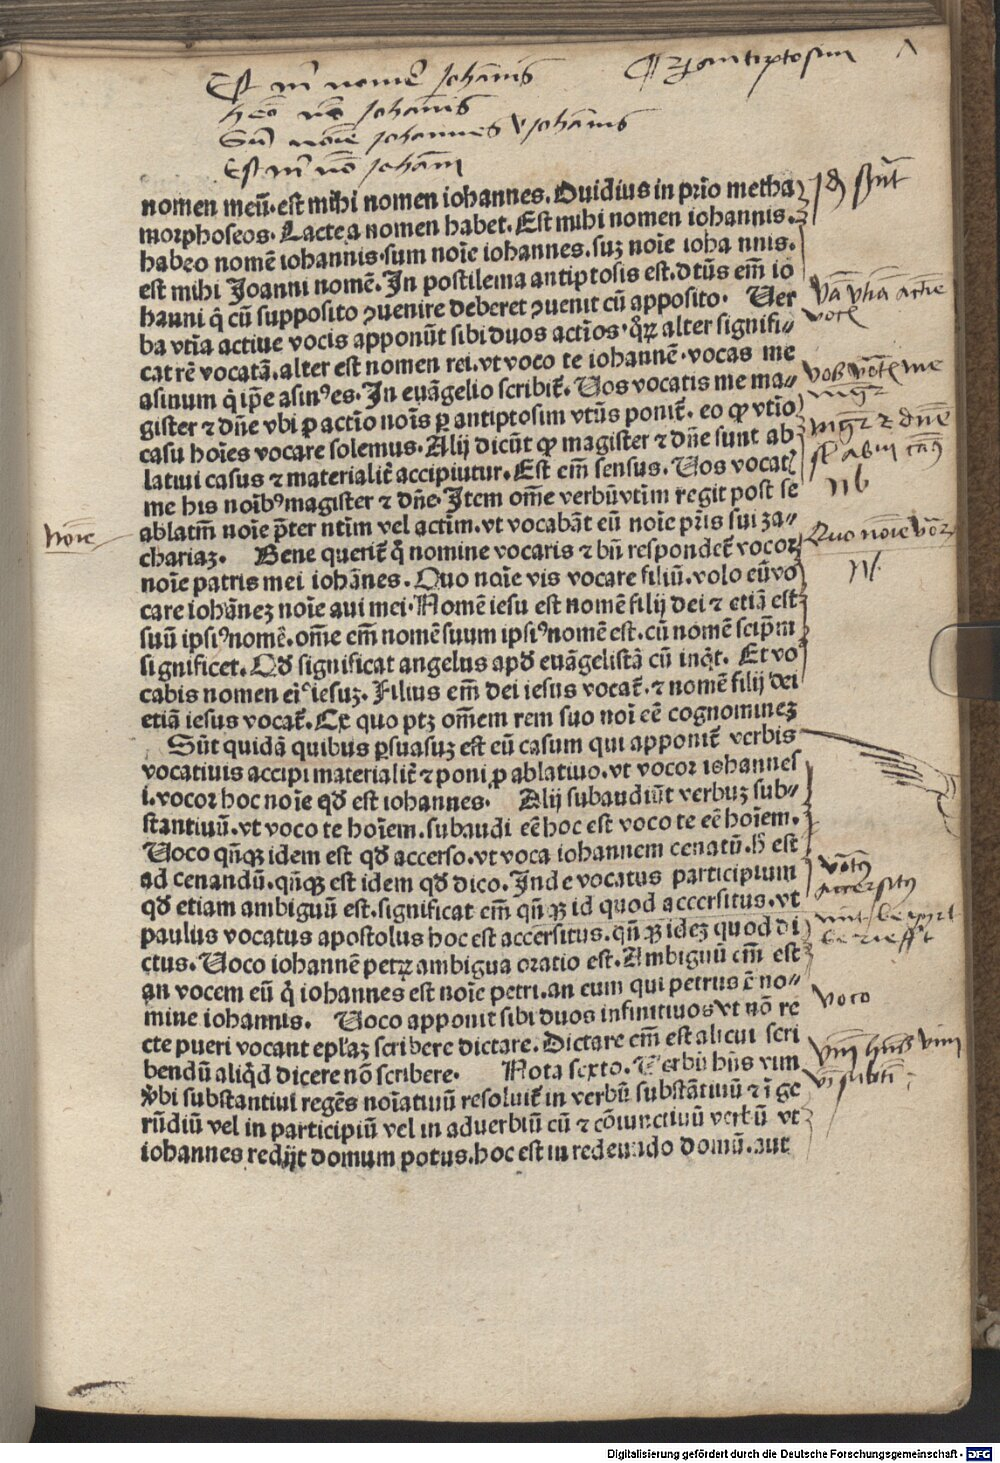 Est m̄ nomē Johānis
hēo nōe Johānis
Sū noīe Johannes Johānis
Est m̄ nō Johāni
antiptosim
nomen meū·est mihi nomen iohannes. Ouidius in prīo metha
morphoseos. Lactea nomen habet. Est mihi nomen iohannis.
habeo nomē iohannis·sum noīe iohannes. suꝫ noīe ioha nnis.
est mihi Joanni nomē. In postilema antiptosis est. dtūs em̄ io
hanni q̇ cū supposito ꝯuenire deberet ꝯuenit cū apposito· Uer
ba vtīa actiue vocis apponūt sibi duos actīos·qr̄ꝝ alter signifi⸗
cat rē vocatā. alter est nomen rei. vt voco te iohannē·vocas me
asinum q̇ ip̄e asinꝰes. In euāgelio scribit̄. Uos vocatis me ma⸗
gister ⁊ dn̄e vbi ꝓ actīo noīs ꝑ antiptosim vtūs ponit̄. eo ꝙ vtīo
casu hoīes vocare solemus. Alij dicūt ꝙ magister ⁊ dn̄e sunt ab
latiui casus ⁊ materialit̄ accipiutur. Est em̄ sensus. Uos vocat̄
me his noībꝰmagister ⁊ dn̄e· Item om̄e verbūvtīm regit post se
ablatm̄ noīe p̄ter ntīm vel actīm. vt vocabāt eū noīe pr̄is sui za⸗
chariaꝫ. Bene querit̄ q̇ nomine vocaris ⁊ bn̄ respondet̄ vocor
noīe patris mei iohānes. Quo noīe vis vocare filiū. volo eūvo
care iohāneꝫ noīe aui mei·Nomē iesu est nomē filij dei ⁊ etiā est
suū ipsiꝰnomē. om̄e em̄ nomē suum ipsiꝰnomē est. cū nomē seip̄m
significet. Qd̄ significat angelus apd̄ euāgelistā cū inq̇t. Et vo
cabis nomen eiꝰiesuꝫ. Filius em̄ dei iesus vocat̄. ⁊ nomē filij dei
etiā iesus vocat̄. Ex quo ptꝫ om̄em rem suo noī eē cognomineꝫ
Sūt quidā quibus ꝑsuasuꝫ est eū casum qui apponit̄ verbis
vocatiuis accipi materialit̄ ⁊ poni ꝓ ablatiuo. vt vocor iohannes
i. vocor hoc noīe qd̄ est iohannes· Alij subaudiūt verbuꝫ sub⸗
stantiuū. vt voco te hoīem. subaudi eē hoc est voco te eē hoīem.
Uoco qn̄qꝫ idem est qd̄ accerso. vt voca iohannem cenatū. h̄ est
ad cenandū. qn̄qꝫ est idem qd̄ dico. Inde vocatus participium
qd̄ etiam ambiguū est. significat em̄ qn̄qꝫ id quod accersitus. vt
paulus vocatus apostolus hoc est accersitus. qn̄qꝫ ideꝫ quod di
ctus. Uoco iohannē petrꝝ ambigua oratio est. Ambiguū em̄ est
an vocem eū q̇ iohannes est noīe petri. an eum qui petrus ē no⸗
mine iohannis. Uoco apponit sibi duos infinitiuos vt nō re
cte pueri vocant epl̄aꝫ scribere dictare. Dictare em̄ est alicui scri
bendū aliq̇d dicere nō scribere· Nota sexto. Uerbū hn̄s vim
v̄bi substantiui regēs noīatiuū resoluit̄ in verbū substātiuū ⁊ ī ge
rūdiū vel in participiū vel in aduerbiū cū ⁊ cōiunctiuū verbū vt
iohannes redijt domum potus. hoc est in redeundo domū. aut
noīe
nb
Quo noīe vōr
accersitꝰ
voco
Digitalisierung gefördert durch die Deutsche Forschungsgemeinschaft - DFG